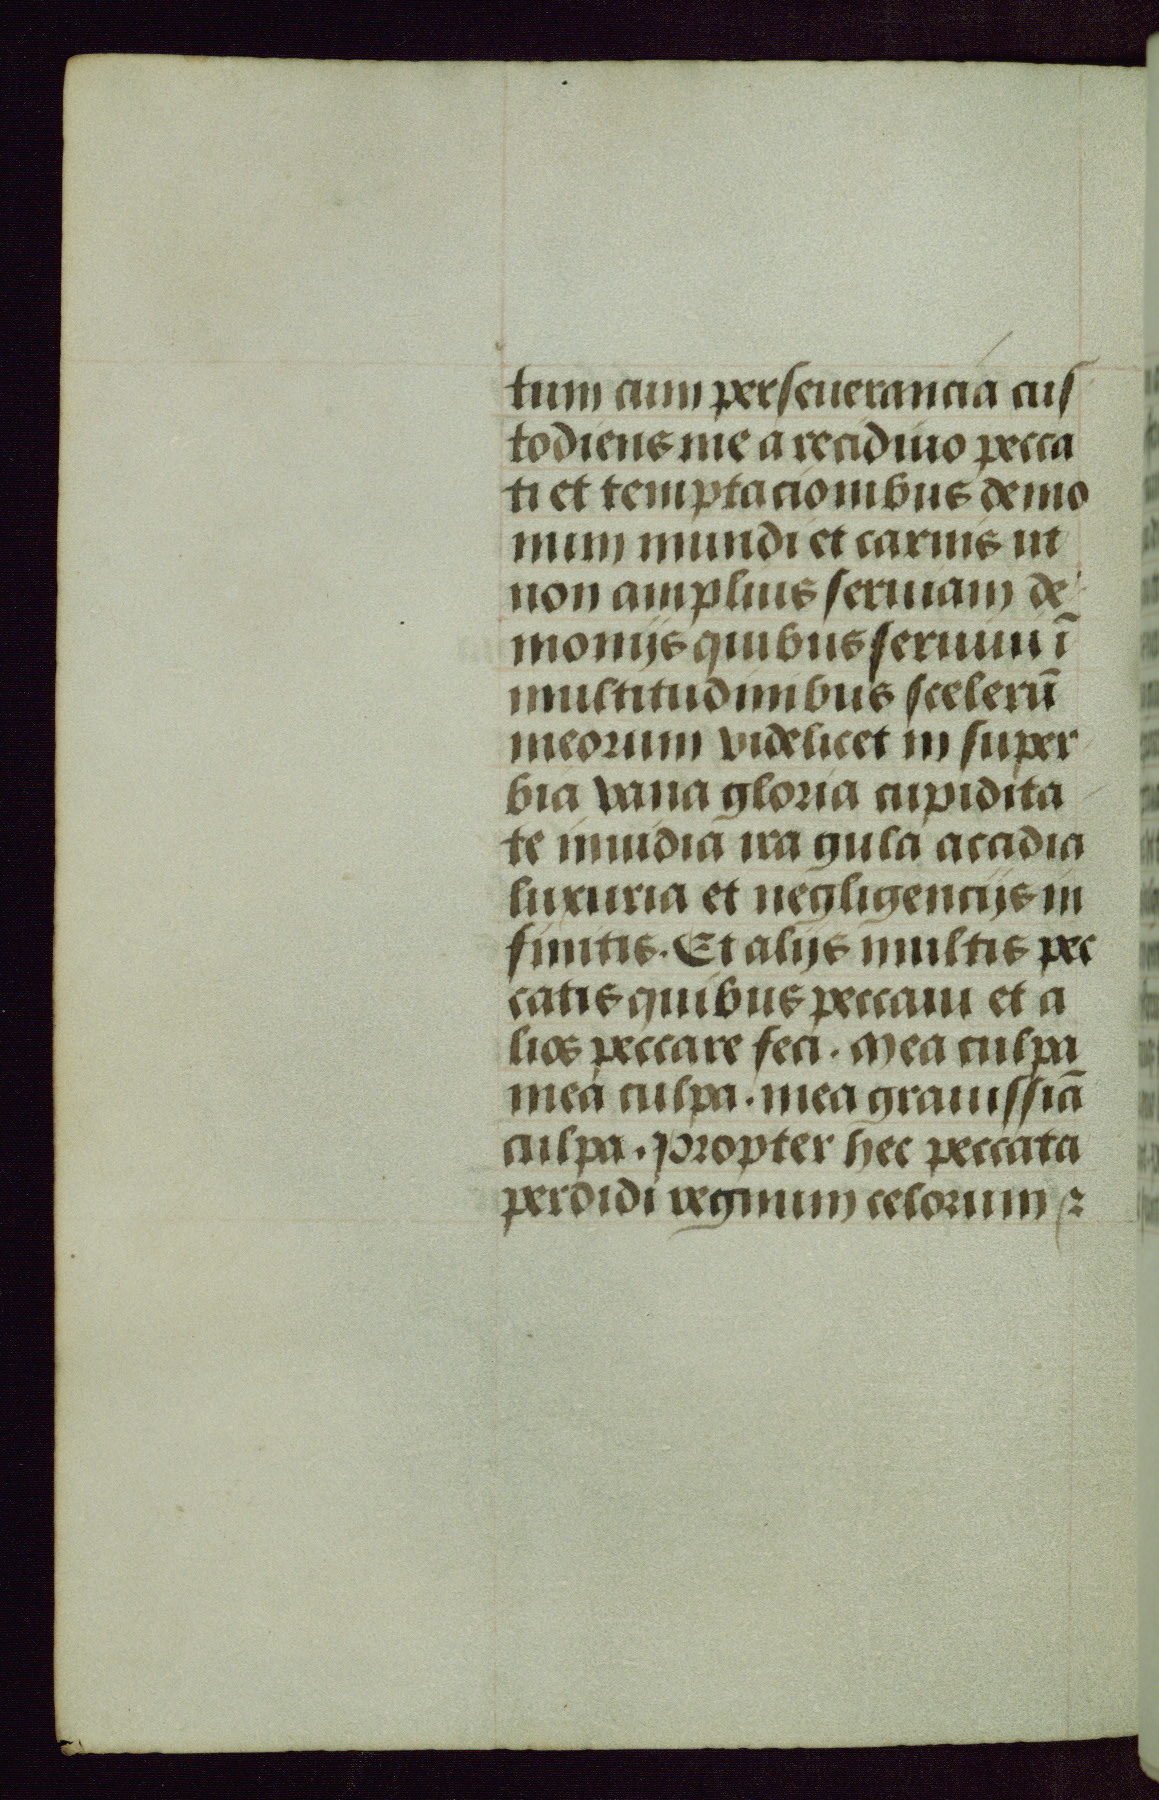 tum cum perseuerancia cus
todiens me a recidiuo pecca
ti et temptacionibus demo
num mundi et carnis ut
non amplius seruiam de
monijs quibus seruiui ī
multitudinibus scelerū
meorum videlicet in super
bia vana gloria cupidita
te inuidia ira gula accidia
luxuria et negligencijs in
finitis. Et alijs multis pec
catis quibus peccaui et a
lios peccare feci. Mea culpa
mea culpa. mea grauissiā
culpa. Propter hec peccata
perdidi regnum celorum ꝛ